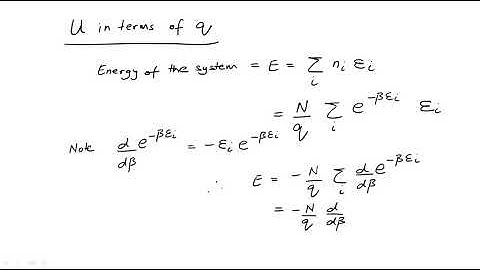 U in terms of q
Energy of the system = E = Σ_i n_i ε_i
= N/q Σ_i e^{-βε_i} ε_i
Note d/dβ e^{-βε_i} = -ε_i e^{-βε_i}
∴ E = -N/q Σ_i d/dβ e^{-βε_i}
= -N/q d/dβ